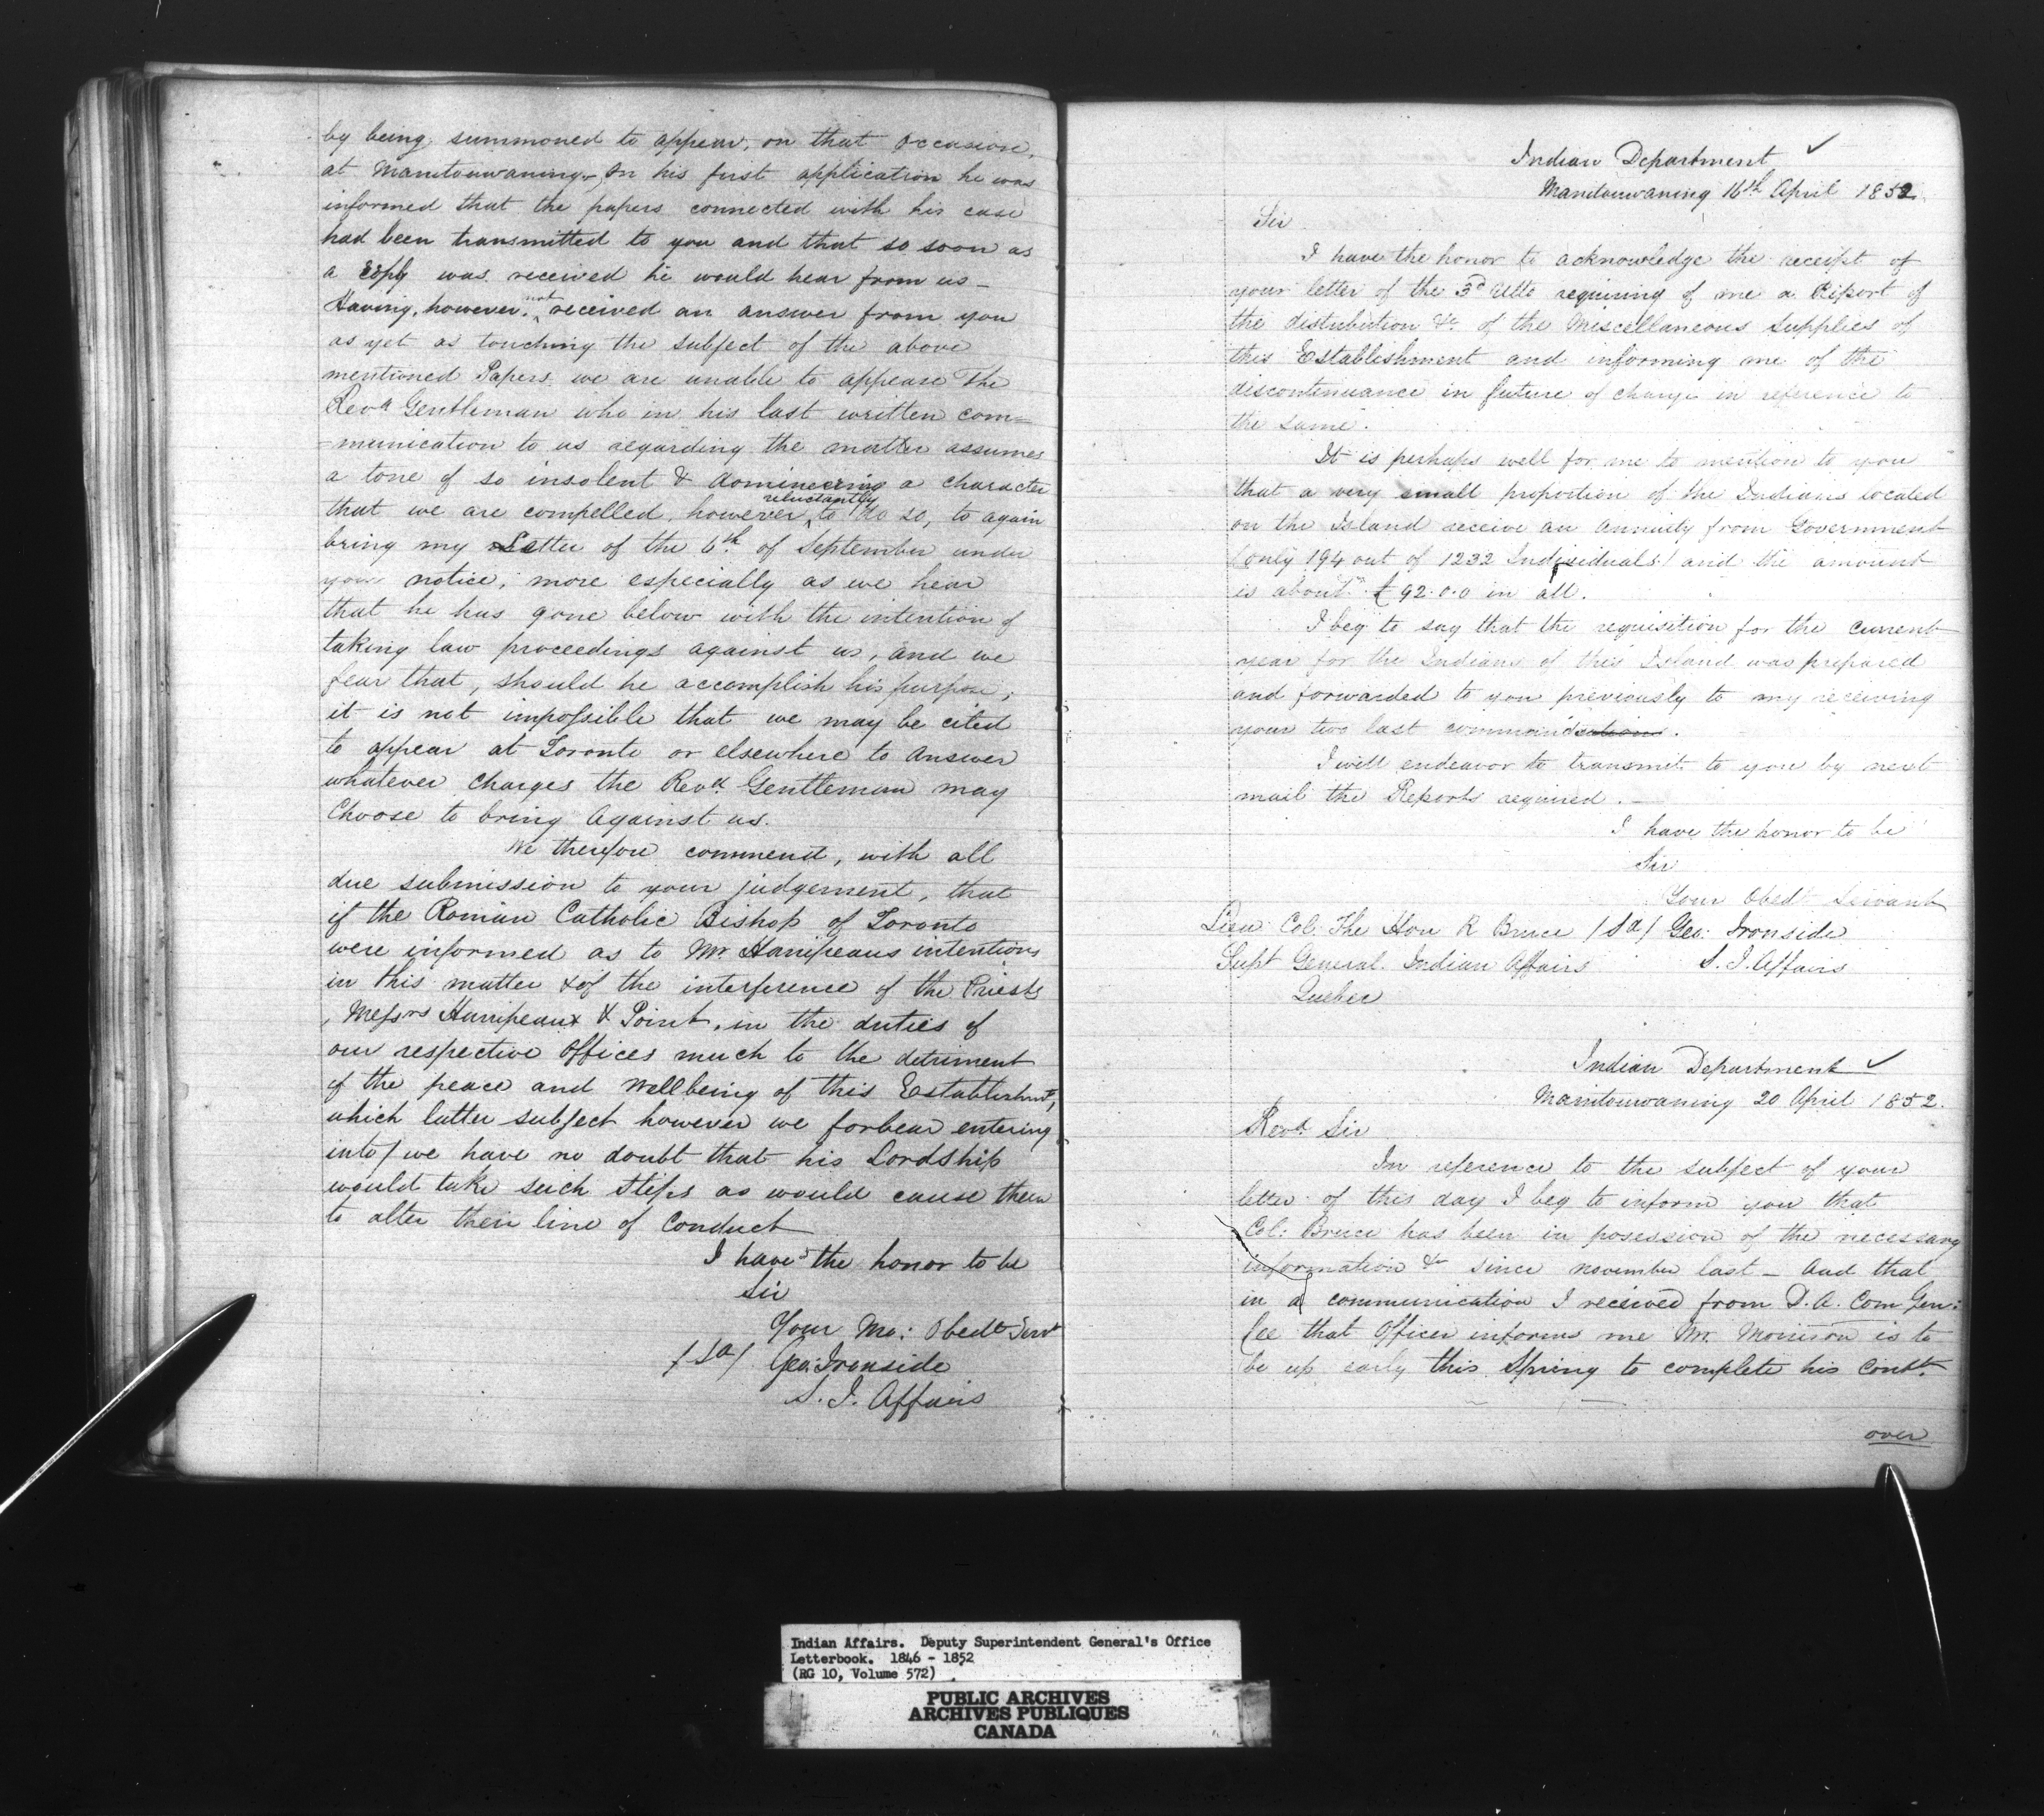 by being summoned to appear, on that occasion,
at Manitouwaning, In his first application he was
informed that the papers connected with his case
had been transmitted to you and that so soon as
a reply was received he would hear from us –
Having, however, not received an answer from you
as yet as touching the subject of the above
mentioned Papers we are unable to appease The
Revd Gentleman who in his last written com=
=munication to us regarding the matter assumes
a tone of so insolent & domineering a character
that we are compelled, however reluctantly to do so, to again
bring my Letter of the 6th of September under
your notice, more especially as we hear
that he has gone below with the intention of
taking law proceedings against us, and we
fear that, should he accomplish his purpose,
it is not impossible that we may be cited
to appear at Toronto or elsewhere to answer
whatever charges the Revd Gentleman may
Choose to bring Against us.
We therefore commend, with all
due submission to your judgement, that
if the Roman Catholic Bishop of Toronto
were informed as to Mr Hanipeaus intentions
in this matter & of the interference of the Priests
, Messrs Hanipeaux & Point, in the duties of
our respective Offices much to the detriment
of the peace and wellbeing of this Establishmt,
which latter subject however we forbear entering
into / we have no doubt that his Lordship
would take such steps as would cause them
to alter their line of Conduct
I have the honor to be
Sir
Your Mo: Obedt Servt
/Sd/ Geo: Ironside
S. I. Affairs
Indian Department ✓
Manitouwaning 16th April 1852.
Sir
I have the honor to acknowledge the receipt of
your letter of the 3d Ulto requiring of me a Report of
the distribution &c. of the Miscellaneous Supplies of
this Establishment and informing me of the
discontinuance in future of charge in reference to
the same.
It is perhaps well for me to mention to you
that a very small proportion of the Indians located
on the Island receive an annuity from Government
(only 194 out of 1232 Individuals) and the amount
is about £92.0.0 in all.
I beg to say that the requisition for the current
year for the Indians of this Island was prepared
and forwarded to you previously to my receiving
your two last
I will endeavor to transmit to you by next
mail the Reports required. –
I have the honor to be
Sir
Your Obedt Servant
Lieu Col: The Hon R Bruce /Sd/ Geo: Ironside
Supt General Indian Affairs S. I. Affairs
Quebec
Indian Department ✓
Manitouwaning 20 April 1852.
Revd. Sir
In reference to the subject of your
letter of this day I beg to inform you that
Col: Bruce has been in posession of the necessary
information &c since november last – And that
in a communication I received from D. A. Com Gen:
Lee that Officer informs me Mr. Morrison is to
be up early this Spring to complete his Contt.
over
Indian Affairs. Deputy Superintendent General's Office
Letterbook. 1846 - 1852
(RG 10, Volume 572)
PUBLIC ARCHIVES
ARCHIVES PUBLIQUES
CANADA